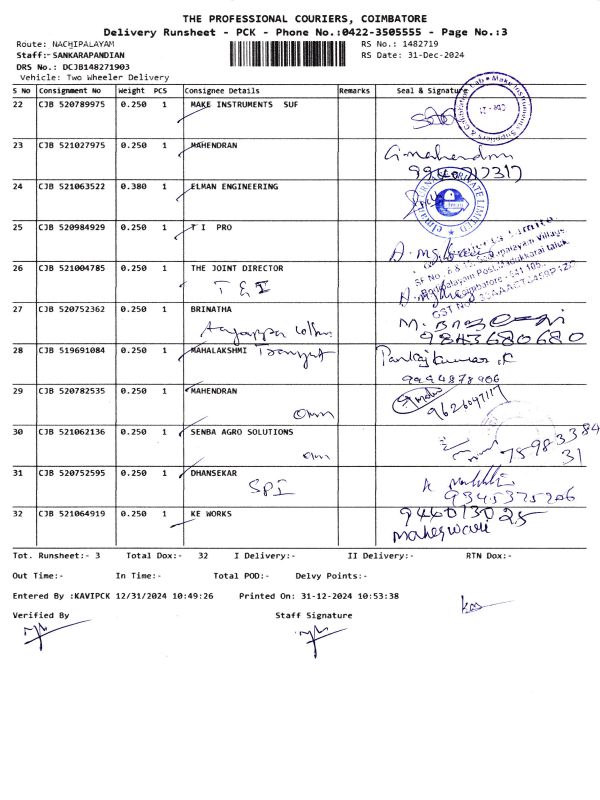 THE PROFESSIONAL COURIERS, COIMBATORE
Delivery Runsheet - PCK - Phone No.:0422-3505555 - Page No.:3
Route: NACHIPALAYAM RS No.: 1482719
Staff:- SANKARAPANDIAN RS Date: 31-Dec-2024
DRS No.: DCJB148271903
Vehicle: Two Wheeler Delivery
S No Consignment No Weight PCS Consignee Details Remarks Seal & Signature
22 CJB 520789975 0.250 1 MAKE INSTRUMENTS SUF
23 CJB 521027975 0.250 1 MAHENDRAN
G.mahendran
9940717317
24 CJB 521063522 0.380 1 ELMAN ENGINEERING
25 CJB 520984929 0.250 1 T I PRO
26 CJB 521004785 0.250 1 THE JOINT DIRECTOR
T & I
27 CJB 520752362 0.250 1 BRINATHA
9843680680
28 CJB 519691084 0.250 1 MAHALAKSHMI Transport
Pankaj Kumar .R
9994878906
29 CJB 520782535 0.250 1 MAHENDRAN
9626097117
30 CJB 521062136 0.250 1 SENBA AGRO SOLUTIONS
75983384
31
31 CJB 520752595 0.250 1 DHANSEKAR
SPI
9345375206
32 CJB 521064919 0.250 1 KE WORKS
9446013025
Maheswari
Tot. Runsheet:- 3 Total Dox:- 32 I Delivery:- II Delivery:- RTN Dox:-
Out Time:- In Time:- Total POD:- Delvy Points:-
Entered By :KAVIPCK 12/31/2024 10:49:26 Printed On: 31-12-2024 10:53:38
Verified By Staff Signature